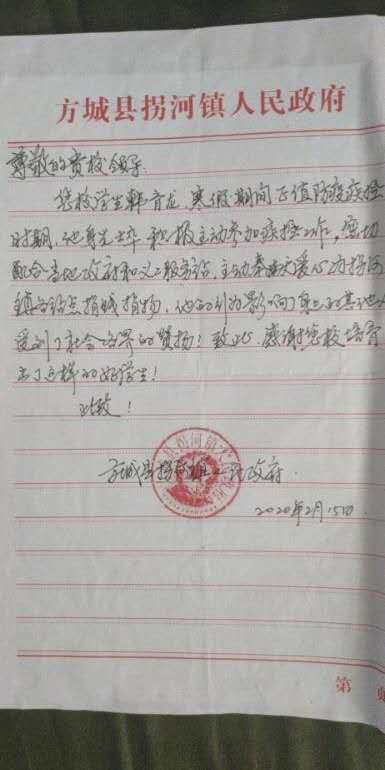 方城县拐河镇人民政府
尊敬的贵校领导:
您校学生韩育龙,寒假期间正值防疫疾控
时期,他身先士卒积极主动参加疾控工作,密切
配合当地政府和义工服务站,主动奉献爱心为拐河
镇各站点捐钱捐物,他的行为影响了身边的其他人
受到了社会各界的赞扬!致此,感谢您校培育
出了这样的好学生!
此致!
方城县拐河镇人民政府
2020年2月15日
第